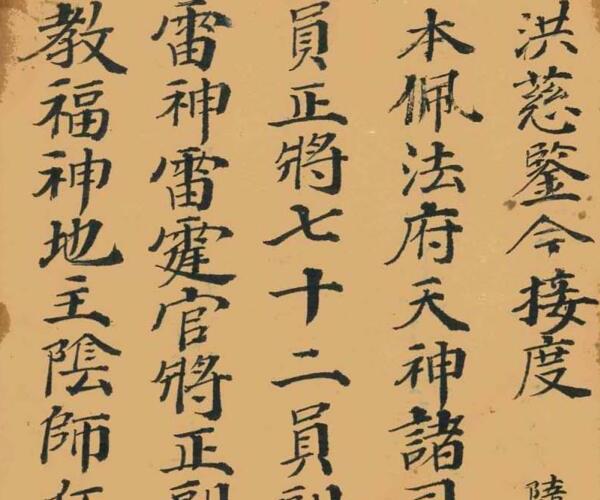 洪慈鑒今接度
本佩法府天神諸司
員正將七十二員副
雷神雷霆官將正副
教福神地主陰師